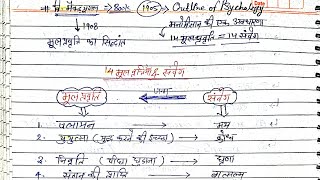 मैक्डूगल → Book (1905) → Outline of Psychology
1908 मनोविज्ञान की एक अवधारणा
मूलप्रवृत्ति का सिद्धांत 14 मूलप्रवृत्ति = 14 संवेग
14 मूल प्रवृत्तियाँ & संवेग
मूलप्रवृत्ति संवेग
1. पलायन → भय
2. युयुत्सा (युद्ध करने की इच्छा) → क्रोध
3. निवृत्ति (पीछा छुड़ाना) → घृणा
4. संतान की प्राप्ति → वात्सल्य